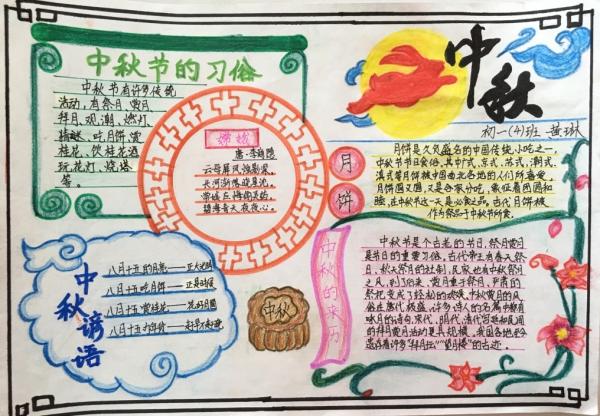 中秋节的习俗
中秋节有许多传统
活动，有祭月、赏月
拜月、观潮、燃灯
猜谜、吃月饼、赏
桂花、饮桂花酒
玩花灯、烧塔
等。
嫦娥
唐·李商隐
云母屏风烛影深，
长河渐落晓星沉。
嫦娥应悔偷灵药，
碧海青天夜夜心。
中秋
初一(4)班 黄琳
月饼
月饼是久负盛名的中国传统小吃之一，
中秋节节日食俗，其中广式、京式、苏式、潮式、
滇式等月饼被中国南北各地的人们所喜爱，
月饼圆又圆，又是合家分吃，象征着团圆和
睦，在中秋节这一天是必食之品。古代月饼被
作为祭品于中秋节所食。
中秋谚语
八月十五的月亮——正大光明
八月十五吃月饼——正是时候
八月十五赏桂花——花好月圆
八月十五办年货——赶早不赶晚
中秋
中秋的来历
中秋节是个古老的节日，祭月赏月
是节日的重要习俗，古代帝王有春天祭
日，秋天祭月的社制，民家也有中秋祭月
之风，到了后来，赏月重于祭月，严肃的
祭祀变成了轻松的欢娱。中秋赏月的风
俗在唐代极盛，许多诗人的名篇中都有
咏月的诗句，宋代、明代、清代宫廷和民间
的拜月赏月活动更具规模，我国各地至今
遗存着许多"拜月坛""望月楼"的古迹。